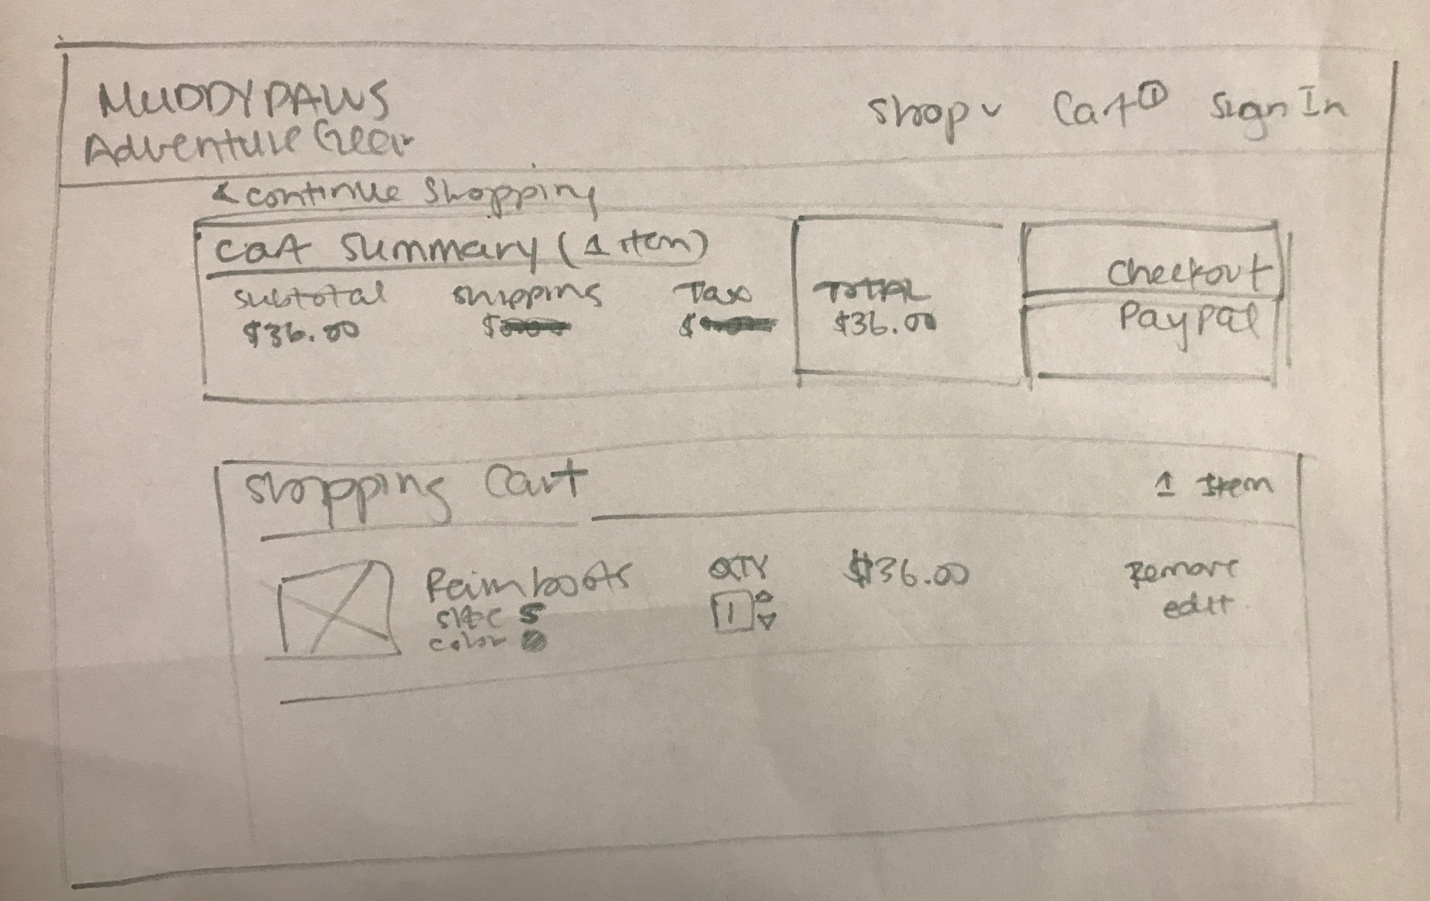 MUDDYPAWS
Adventure Gear
Shop Cart 1 Sign In
< continue shopping
Cart Summary (1 item)
subtotal shipping Tax TOTAL
$36.00 $ $ $36.00
Checkout
Paypal
Shopping Cart 1 Item
boots QTY $36.00 Remove
size S 1 edit
color